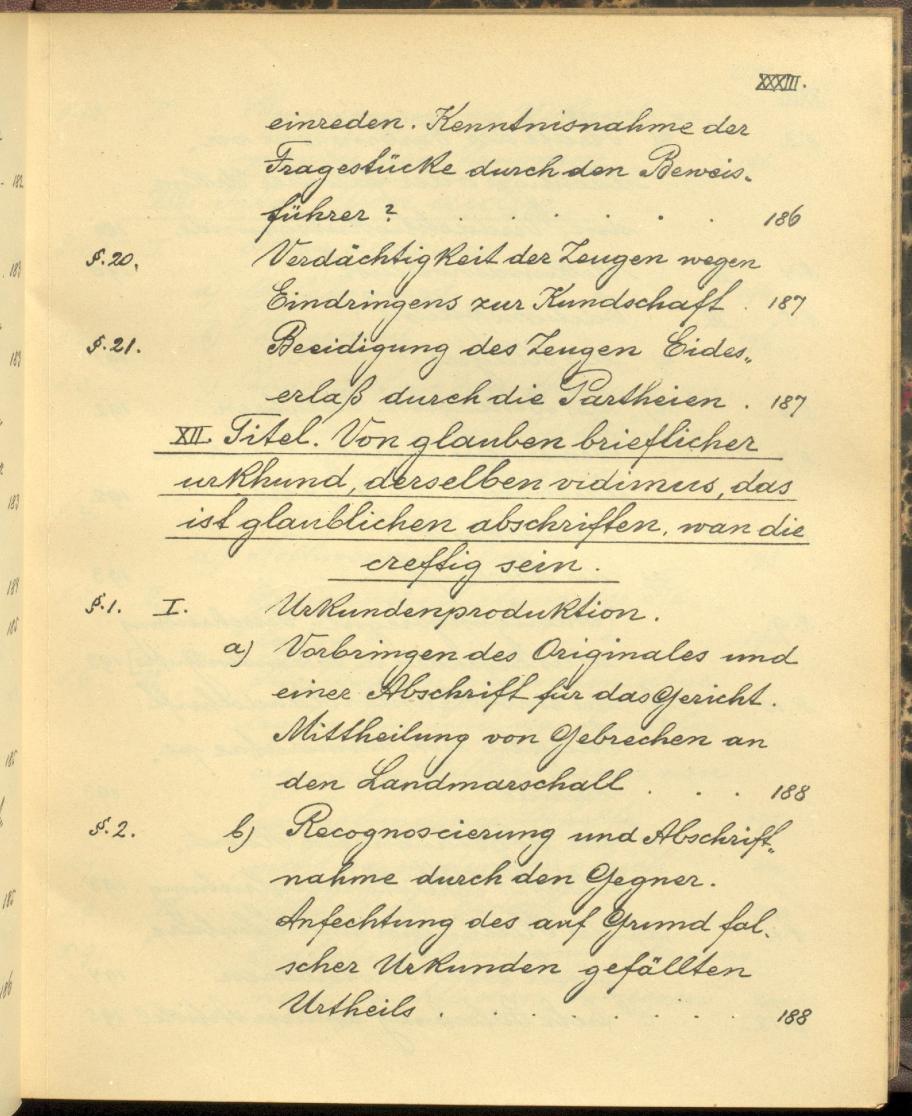 XXXIII.
einreden. Kenntnisnahme der
Fragestücke durch den Beweis-
führer? . . . . . . 186
§. 20. Verdächtigkeit der Zeugen wegen
Eindringens zur Kundschaft . 187
§. 21. Beeidigung des Zeugen Eides-
erlaß durch die Partheien . 187
XII. Titel. Von glauben brieflicher
urkhund, derselben vidimus, das
ist glaublichen abschriften, wan die
creftig sein.
§. 1. I. Urkundenproduktion.
a) Vorbringen des Originales und
einer Abschrift für das Gericht.
Mittheilung von Gebrechen an
den Landmarschall . . . 188
§. 2. b) Recognoscierung und Abschrift-
nahme durch den Gegner.
Anfechtung des auf Grund fal-
scher Urkunden gefällten
Urtheils . . . . . . 188
182
183
183
183
184
185
185
185
186